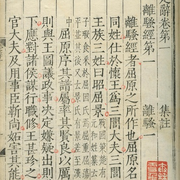 楚辭卷第一 集註
離騷經第一 離騷
離騷經者屈原之所作也屈原名
同姓仕於懷王為三閭大夫三閭
王族三姓曰昭屈景
屈原序其譜屬率其賢良以厲
則與王圖議政事決定嫌疑出則
下應對諸侯謀行職修王甚珍之
官大夫及用事臣靳尚妬害其能